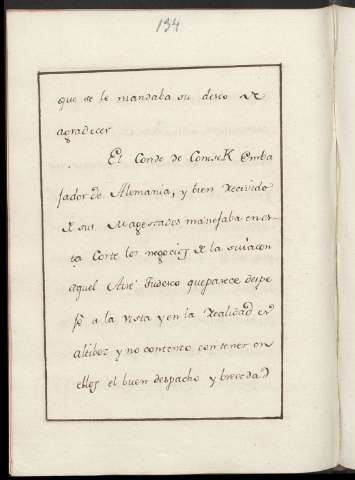 134
que se le mandaba su deseo de
agradecer
El Conde de ConiseK Emba
jador de Alemania, y bien recivido
de sus Magestades manejaba en es-
ta Corte los negocios de la suia con
aquel Aire Tudesco que parece despe
jo a la vista y en la realidad es
altibez y no contento con tener en
ellos el buen despacho y brevedad